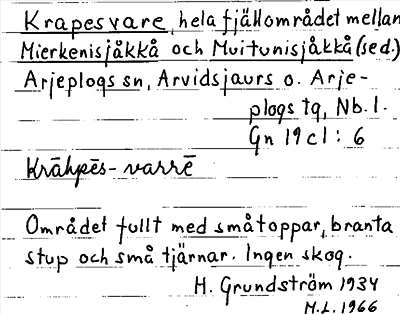 Krapesvare, hela fjällområdet mellan
Mierkenisjåkkå och Muitunisjåkkå (sed.)
Arjeplogs sn, Arvidsjaurs o. Arje-
plogs tg, Nb. l.
Gn 19 c l : 6
Krāhpēs-varrē
Området fullt med småtoppar, branta
stup och små tjärnar. Ingen skog.
H. Grundström 1934
M.L. 1966